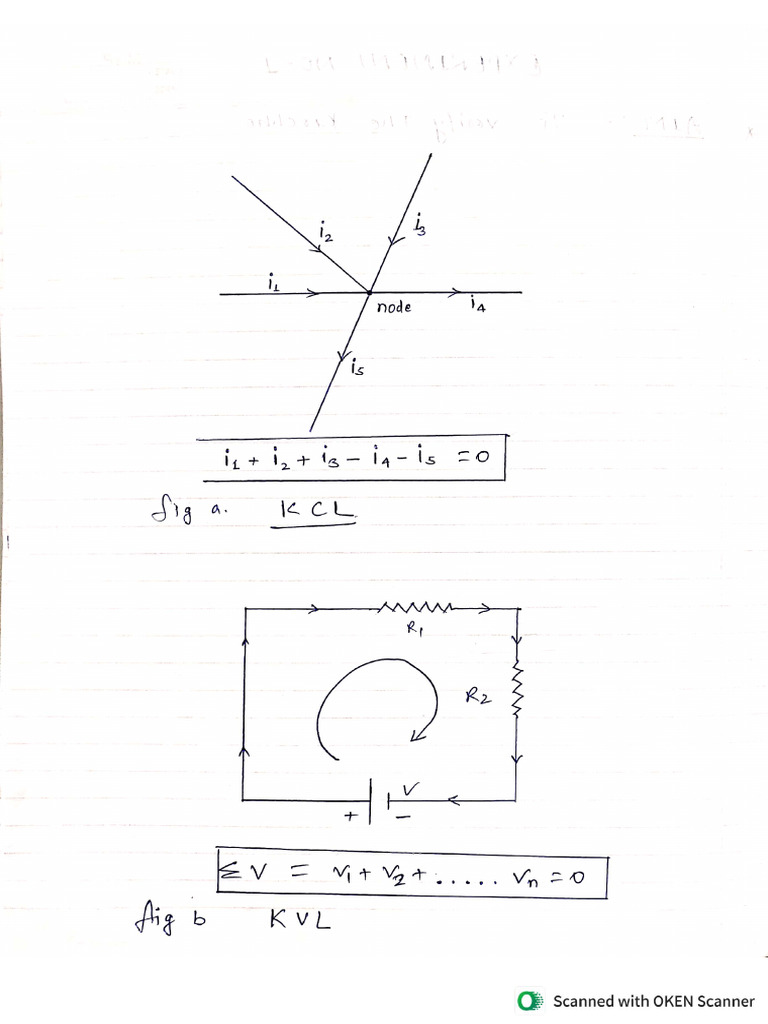 i2
i3
i1
node
i4
i5
i1 + i2 + i3 - i4 - i5 = 0
fig a. KCL
R1
R2
V
+ -
ΣV = V1 + V2 + ..... Vn = 0
fig b KVL
Scanned with OKEN Scanner